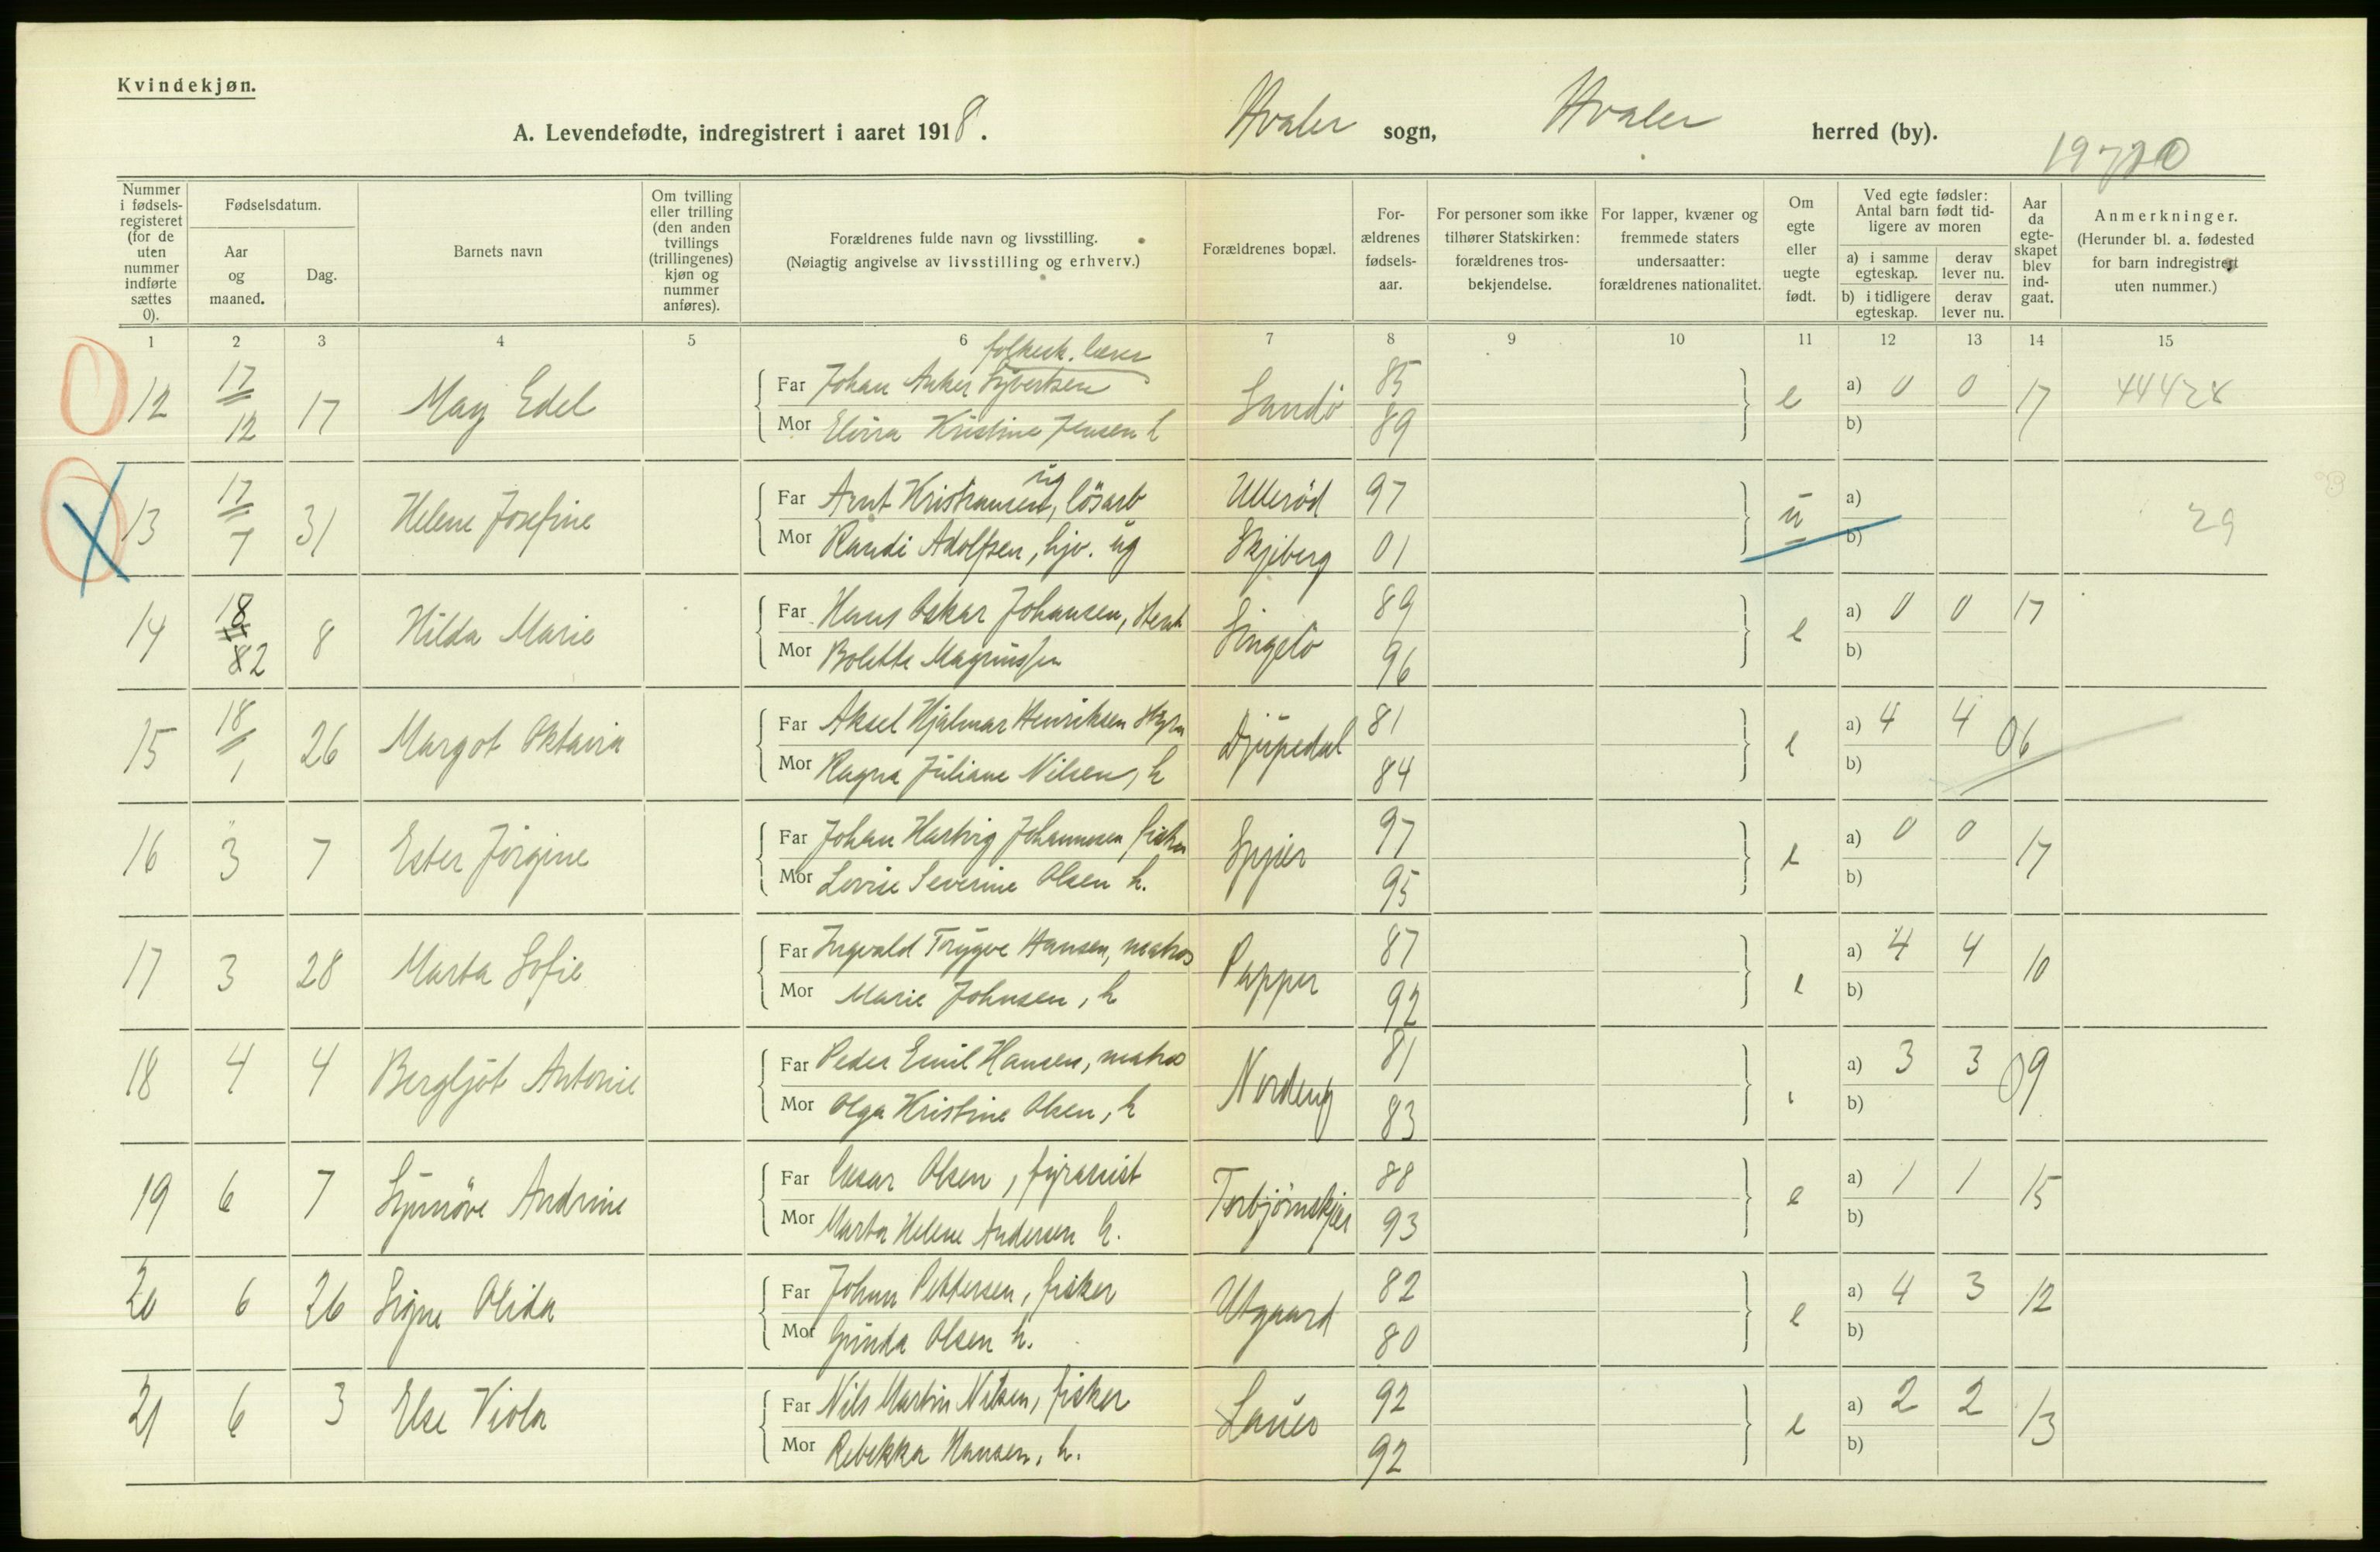 Kvindekjøn.
A. Levendefødte, indregistrert i aaret 1918.
Hvaler sogn, Hvaler herred (by).
Nummer i fødselsregisteret (for de uten nummer indførte sættes 0).
Fødselsdatum.
Aar og maaned.
Dag.
Barnets navn
Om tvilling eller trilling (den anden tvillings (trillingenes) kjøn og nummer anføres).
Forældrenes fulde navn og livsstilling.
(Nøiagtig angivelse av livsstilling og erhverv.)
Forældrenes bopæl.
Forældrenes fødselsaar.
For personer som ikke tilhører Statskirken: forældrenes trosbekjendelse.
For lapper, kvæner og fremmede staters undersaatter: forældrenes nationalitet.
Om egte eller uegte født.
Ved egte fødsler: Antal barn født tidligere av moren
a) i samme egteskap.
derav lever nu.
b) i tidligere egteskap.
derav lever nu.
Aar da egteskapet blev indgaat.
Anmerkninger.
(Herunder bl. a. fødested for barn indregistrert uten nummer.)
1 2 3 4 5 6 7 8 9 10 11 12 13 14 15
folkesk. lærer
12 17 12 17 May Edel Far Johan Anker Syvertsen Sandö 85 e a) 0 0 17 44428
Mor Elvira Kristine Jensen h 89 b)
13 17 7 31 Helene Josefine Far Arnt Kristiansen, ug lösarb Ullerød 97 u a) 29
Mor Randi Adolfsen, hjv. ug Skjeberg 01 b)
14 18 2 8 Hilda Marie Far Hans Oskar Johansen, Singelö 89 e a) 0 0 17
Mor Bolette Magnussen 96 b)
15 18 1 26 Margot Oktavia Far Aksel Hjalmar Henriksen Djupedal 81 e a) 4 4 06
Mor Ragna Juliane Nilsen, h 84 b)
16 3 7 Ester Jörgine Far Johan Hartvig Johannesen fisker Spjær 97 e a) 0 0 17
Mor Lovise Severine Olsen h. 95 b)
17 3 28 Marta Sofie Far Ingvald Trygve Hansen, matros Papper 87 e a) 4 4 10
Mor Marie Johnsen, h 92 b)
18 4 4 Bergljot Antonie Far Peder Emil Hansen, matros Nordeng 81 a) 3 3 09
Mor Olga Kristine Olsen, h 83 b)
19 6 7 Synnöve Andrine Far Olsen, Torbjörnskjær 88 e a) 1 1 15
Mor Marta Helene Andersen h. 93 b)
20 6 26 Signe Olida Far Johan Pettersen, fisker Utgaard 82 e a) 4 3 12
Mor Gunda Olsen h. 80 b)
21 6 3 Else Viola Far Nils Martin Nilsen, fisker Lauer 92 e a) 2 2 13
Mor Rebekka Hansen, h. 92 b)